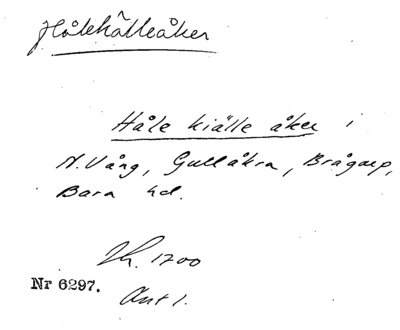 Hålekälleåker
Håle kiälle åker i
N. Vång, Gullåkra, Brågarp,
Bara hd.
Lh. 1700
Nr 6297.
Ant 1.